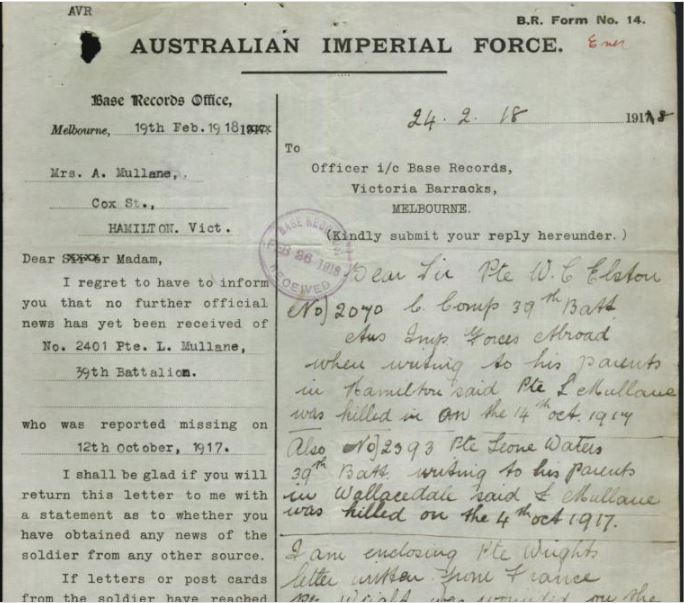 AVR
B.R. Form No. 14.
AUSTRALIAN IMPERIAL FORCE.
Base Records Office,
Melbourne, 19th Feb. 19 18
Mrs. A. Mullane,
Cox St.,
HAMILTON. Vict.
Dear Sir or Madam,
I regret to have to inform
you that no further official
news has yet been received of
No. 2401 Pte. L. Mullane,
39th Battalion.
who was reported missing on
12th October, 1917.
I shall be glad if you will
return this letter to me with
a statement as to whether you
have obtained any news of the
soldier from any other source.
If letters or post cards
from the soldier have reached
24. 2. 18 1918
To
Officer i/c Base Records,
Victoria Barracks,
MELBOURNE.
(Kindly submit your reply hereunder.)
BASE RECORDS
FEB 26 1918
RECEIVED
Dear Sir Pte W. C Elston
No] 2070 C. Comp 39th Batt
Aus Imp Forces Abroad
when writing to his parents
in Hamilton said Pte L Mullane
was killed in on the 14th oct. 1917
Also No] 2393 Pte Leone Waters
39th Batt writing to his parents
in Wallacedale said L Mullane
was killed on the 4th oct 1917.
I am enclosing Pte Wrights
letter written from France
Pte Wright was wounded on the